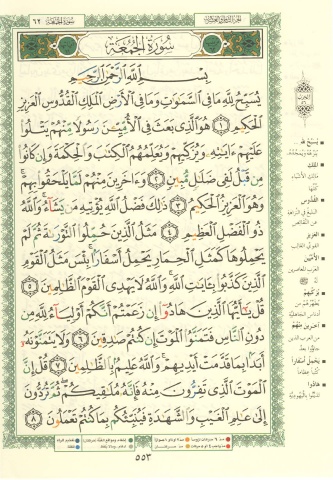 سُورَةُ الجُمُعَةِ
٦٢
سُورَةُ الجُمُعَةِ
بِسْمِ اللَّهِ الرَّحْمَٰنِ الرَّحِيمِ
يُسَبِّحُ لِلَّهِ مَا فِي السَّمَٰوَٰتِ وَمَا فِي الْأَرْضِ الْمَلِكِ الْقُدُّوسِ الْعَزِيزِ
الْحَكِيمِ ١ هُوَ الَّذِي بَعَثَ فِي الْأُمِّيِّـۧنَ رَسُولًا مِّنْهُمْ يَتْلُوا
عَلَيْهِمْ ءَايَٰتِهِۦ وَيُزَكِّيهِمْ وَيُعَلِّمُهُمُ الْكِتَٰبَ وَالْحِكْمَةَ وَإِن كَانُوا
مِن قَبْلُ لَفِي ضَلَٰلٍ مُّبِينٍ ٢ وَءَاخَرِينَ مِنْهُمْ لَمَّا يَلْحَقُوا بِهِمْ
وَهُوَ الْعَزِيزُ الْحَكِيمُ ٣ ذَٰلِكَ فَضْلُ اللَّهِ يُؤْتِيهِ مَن يَشَآءُ وَاللَّهُ
ذُو الْفَضْلِ الْعَظِيمِ ٤ مَثَلُ الَّذِينَ حُمِّلُوا التَّوْرَىٰةَ ثُمَّ لَمْ
يَحْمِلُوهَا كَمَثَلِ الْحِمَارِ يَحْمِلُ أَسْفَارًا بِئْسَ مَثَلُ الْقَوْمِ
الَّذِينَ كَذَّبُوا بِـَٔايَٰتِ اللَّهِ وَاللَّهُ لَا يَهْدِي الْقَوْمَ الظَّٰلِمِينَ ٥
قُلْ يَٰٓأَيُّهَا الَّذِينَ هَادُوٓا إِن زَعَمْتُمْ أَنَّكُمْ أَوْلِيَآءُ لِلَّهِ مِن
دُونِ النَّاسِ فَتَمَنَّوُا الْمَوْتَ إِن كُنتُمْ صَٰدِقِينَ ٦ وَلَا يَتَمَنَّوْنَهُۥٓ
أَبَدًۢا بِمَا قَدَّمَتْ أَيْدِيهِمْ وَاللَّهُ عَلِيمٌۢ بِالظَّٰلِمِينَ ٧ قُلْ إِنَّ
الْمَوْتَ الَّذِي تَفِرُّونَ مِنْهُ فَإِنَّهُۥ مُلَٰقِيكُمْ ثُمَّ تُرَدُّونَ
إِلَىٰ عَٰلِمِ الْغَيْبِ وَالشَّهَٰدَةِ فَيُنَبِّئُكُم بِمَا كُنتُمْ تَعْمَلُونَ ٨
يُسَبِّحُ لله
الملك
القدوس
العزيز
الأميين
يزكيهم
آخرين منهم
يحمل أسفارا
هادوا
٥٥٣